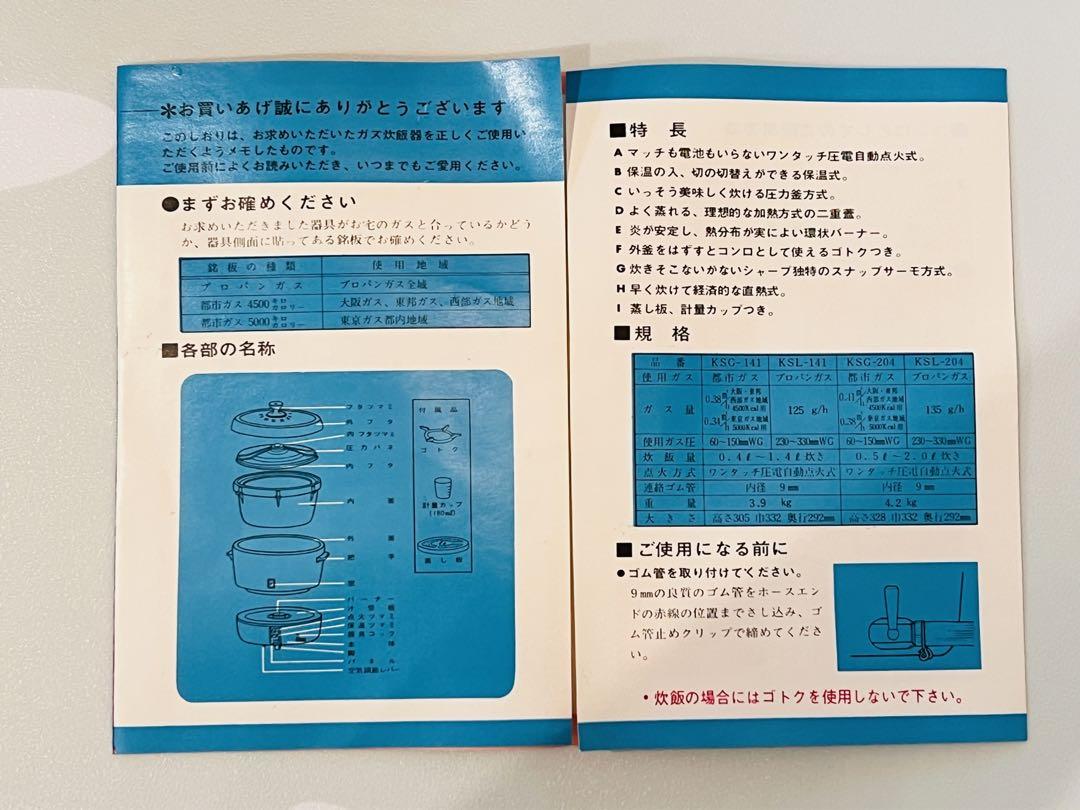 ＊お買いあげ誠にありがとうございます
このしおりは、お求めいただいたガス炊飯器を正しくご使用い
ただくようメモしたものです。
ご使用前によくお読みいただき、いつまでもご愛用ください。
●まずお確めください
お求めいただきました器具がお宅のガスと合っているかどう
か、器具側面に貼ってある銘板でお確めください。
銘板の種類 使用地域
プロパンガス プロパンガス全域
都市ガス 4500キロカロリー 大阪ガス、東邦ガス、西部ガス地域
都市ガス 5000キロカロリー 東京ガス都内地域
■各部の名称
フタツマミ
外フタ
内フタツマミ
圧力バネ
内フタ
内釜
外釜
把手
窓
バーナー
汁受皿
点火ツマミ
保温ツマミ
器具コック
本体
脚
パネル
空気調節レバー
付属品
ゴトク
計量カップ
(180mℓ)
蒸し板
■特長
A マッチも電池もいらないワンタッチ圧電自動点火式。
B 保温の入、切の切替えができる保温式。
C いっそう美味しく炊ける圧力釜方式。
D よく蒸れる、理想的な加熱方式の二重蓋。
E 炎が安定し、熱分布が実によい環状バーナー。
F 外釜をはずすとコンロとして使えるゴトクつき。
G 炊きそこないかないシャープ独特のスナップサーモ方式。
H 早く炊けて経済的な直熱式。
I 蒸し板、計量カップつき。
■規格
品番 KSG-141 KSL-141 KSG-204 KSL-204
使用ガス 都市ガス プロパンガス 都市ガス プロパンガス
ガス量 0.38㎥/h 大阪・東邦西部ガス地域4500Kcal用 0.34㎥/h 東京ガス地域5000Kcal用 125 g/h 0.41㎥/h 大阪・東邦西部ガス地域4500Kcal用 0.38㎥/h 東京ガス地域5000Kcal用 135 g/h
使用ガス圧 60〜150㎜WG 230〜330㎜WG 60〜150㎜WG 230〜330㎜WG
炊飯量 0.4ℓ〜1.4ℓ炊き 0.5ℓ〜2.0ℓ炊き
点火方式 ワンタッチ圧電自動点火式 ワンタッチ圧電自動点火式
連絡ゴム管 内径 9㎜ 内径 9㎜
重量 3.9 kg 4.2 kg
大きさ 高さ305 巾332 奥行292㎜ 高さ328 巾332 奥行292㎜
■ご使用になる前に
●ゴム管を取り付けてください。
9㎜の良質のゴム管をホースエン
ドの赤線の位置までさし込み、ゴ
ム管止めクリップで締めてくださ
い。
・炊飯の場合にはゴトクを使用しないで下さい。